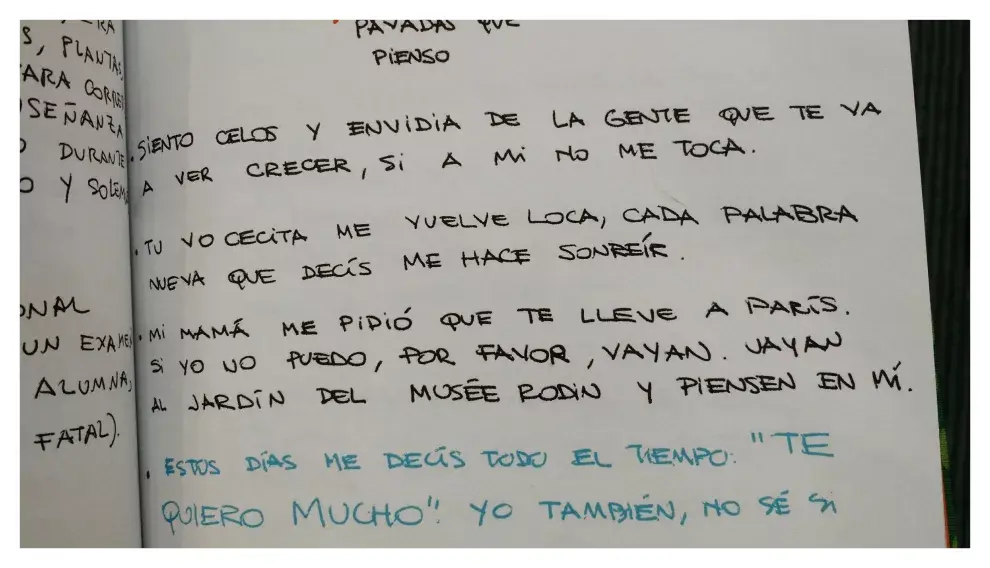 PAVADAS QUE
PIENSO
. SIENTO CELOS Y ENVIDIA DE LA GENTE QUE TE VA
A VER CRECER, SI A MI NO ME TOCA.
. TU VOCECITA ME VUELVE LOCA, CADA PALABRA
NUEVA QUE DECÍS ME HACE SONREÍR.
. MI MAMÁ ME PIDIÓ QUE TE LLEVE A PARÍS.
SI YO NO PUEDO, POR FAVOR, VAYAN. VAYAN
AL JARDÍN DEL MUSÉE RODIN Y PIENSEN EN MÍ.
. ESTOS DÍAS ME DECÍS TODO EL TIEMPO: "TE
QUIERO MUCHO". YO TAMBIÉN, NO SÉ SI
S, PLANTAS
SEÑANZA
DURANTE
Y SOLEM
ONAL
UN EXAMEN
ALUMNA,
FATAL).